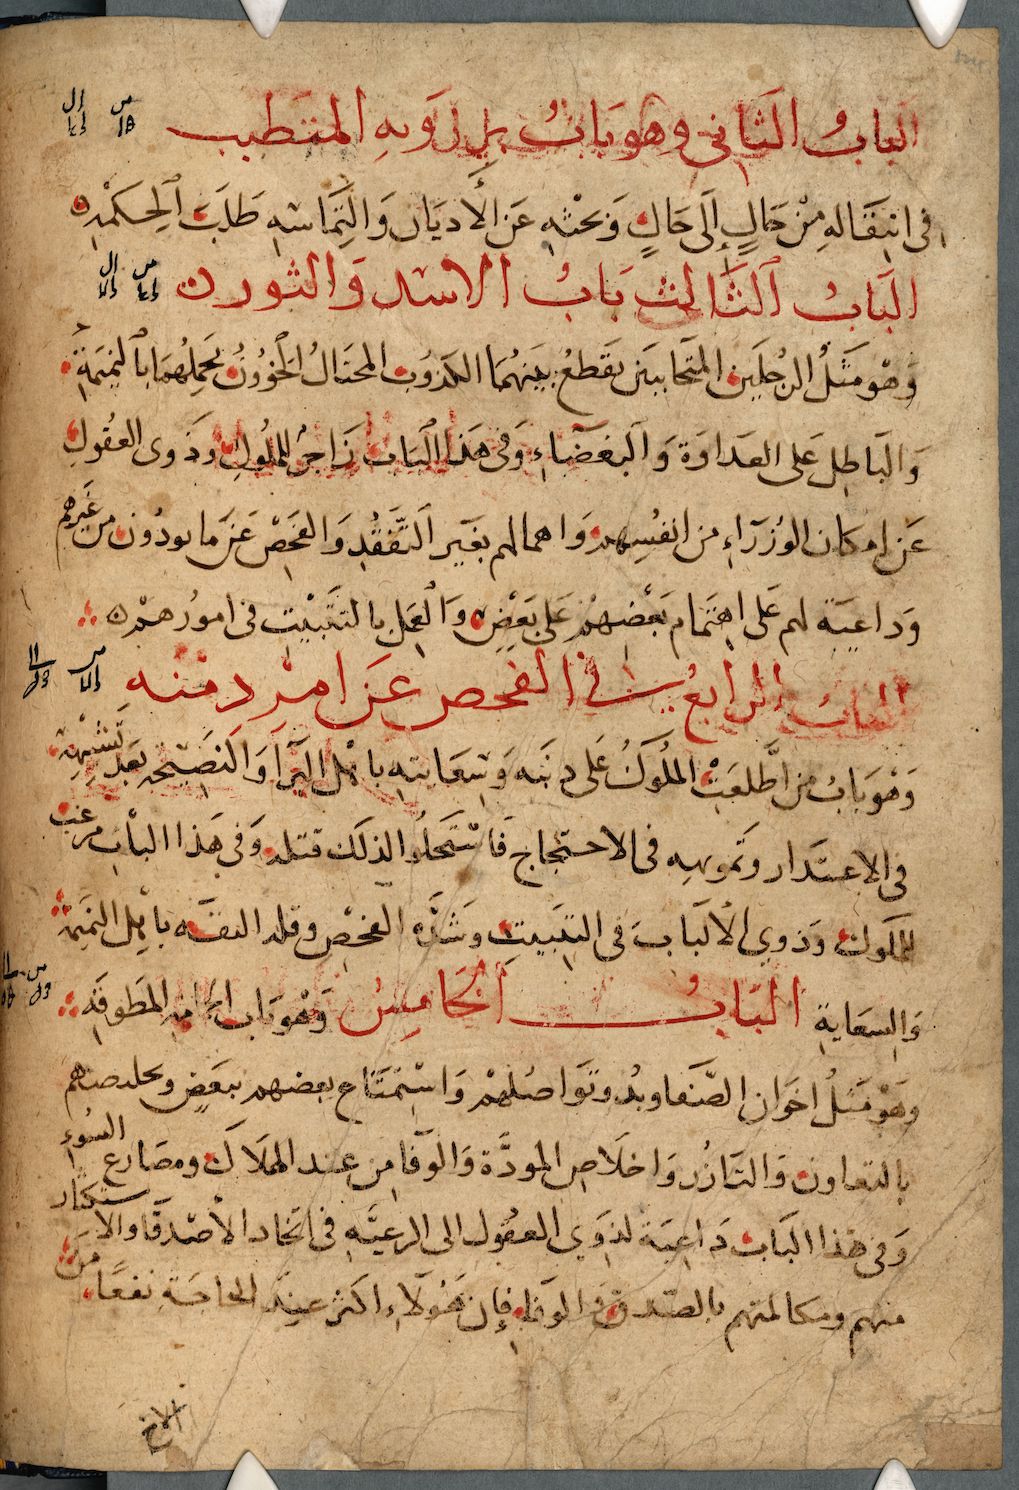 الباب الثاني وهو باب برزويه المتطبب
في انتقاله من حال إلى حال وبحثه عن الأديان والتماسه طلب الحكمة
الباب الثالث باب الاسد والثور
وهو مثل الرجلين المتحابين يقطع بينهما الكذوب المحتال الخؤون بحملهما بالنميمة
والباطل على العداوة والبغضاء وفي هذا الباب زاجر للملوك وذوي العقول
عن امكان الوزراء من انفسهم واهمالهم بغير التفقد والفحص عن ما يودون من غيرهم
وداعية لهم على اهتمام بعضهم على بعض والعمل بالتثبيت في امورهم
الباب الرابع في الفحص عن امر دمنه
وهو باب من اطلعت الملوك على دنبه وسعايته باهل البرآ والنصيحه بعد تشبهه
في الاعتدار وتمويهه في الاحتجاج فاستحلوا لذلك قتله وفي هذا الباب مرغب
للملوك وذوي الألباب في التثبيت وشدة الفحص وقلة الثقه باهل النميمة
والسعاية الباب الخامس وهو باب الحمامه المطوقه
وهو مثل اخوان الصفا وبدو تواصلهم واستمتاع بعضهم ببعض
بالتعاون والتازر واخلاص المودة والوفا من عند الهلاك ومصارع السوء
وفي هذا الباب داعية لذوي العقول الى الرعيه في اتخاد الأصدقا والاستكثار
منهم ومكالمتهم بالصدق والوفا فإن هؤلاء اكثر عند الحاجة نفعا من
الاخ